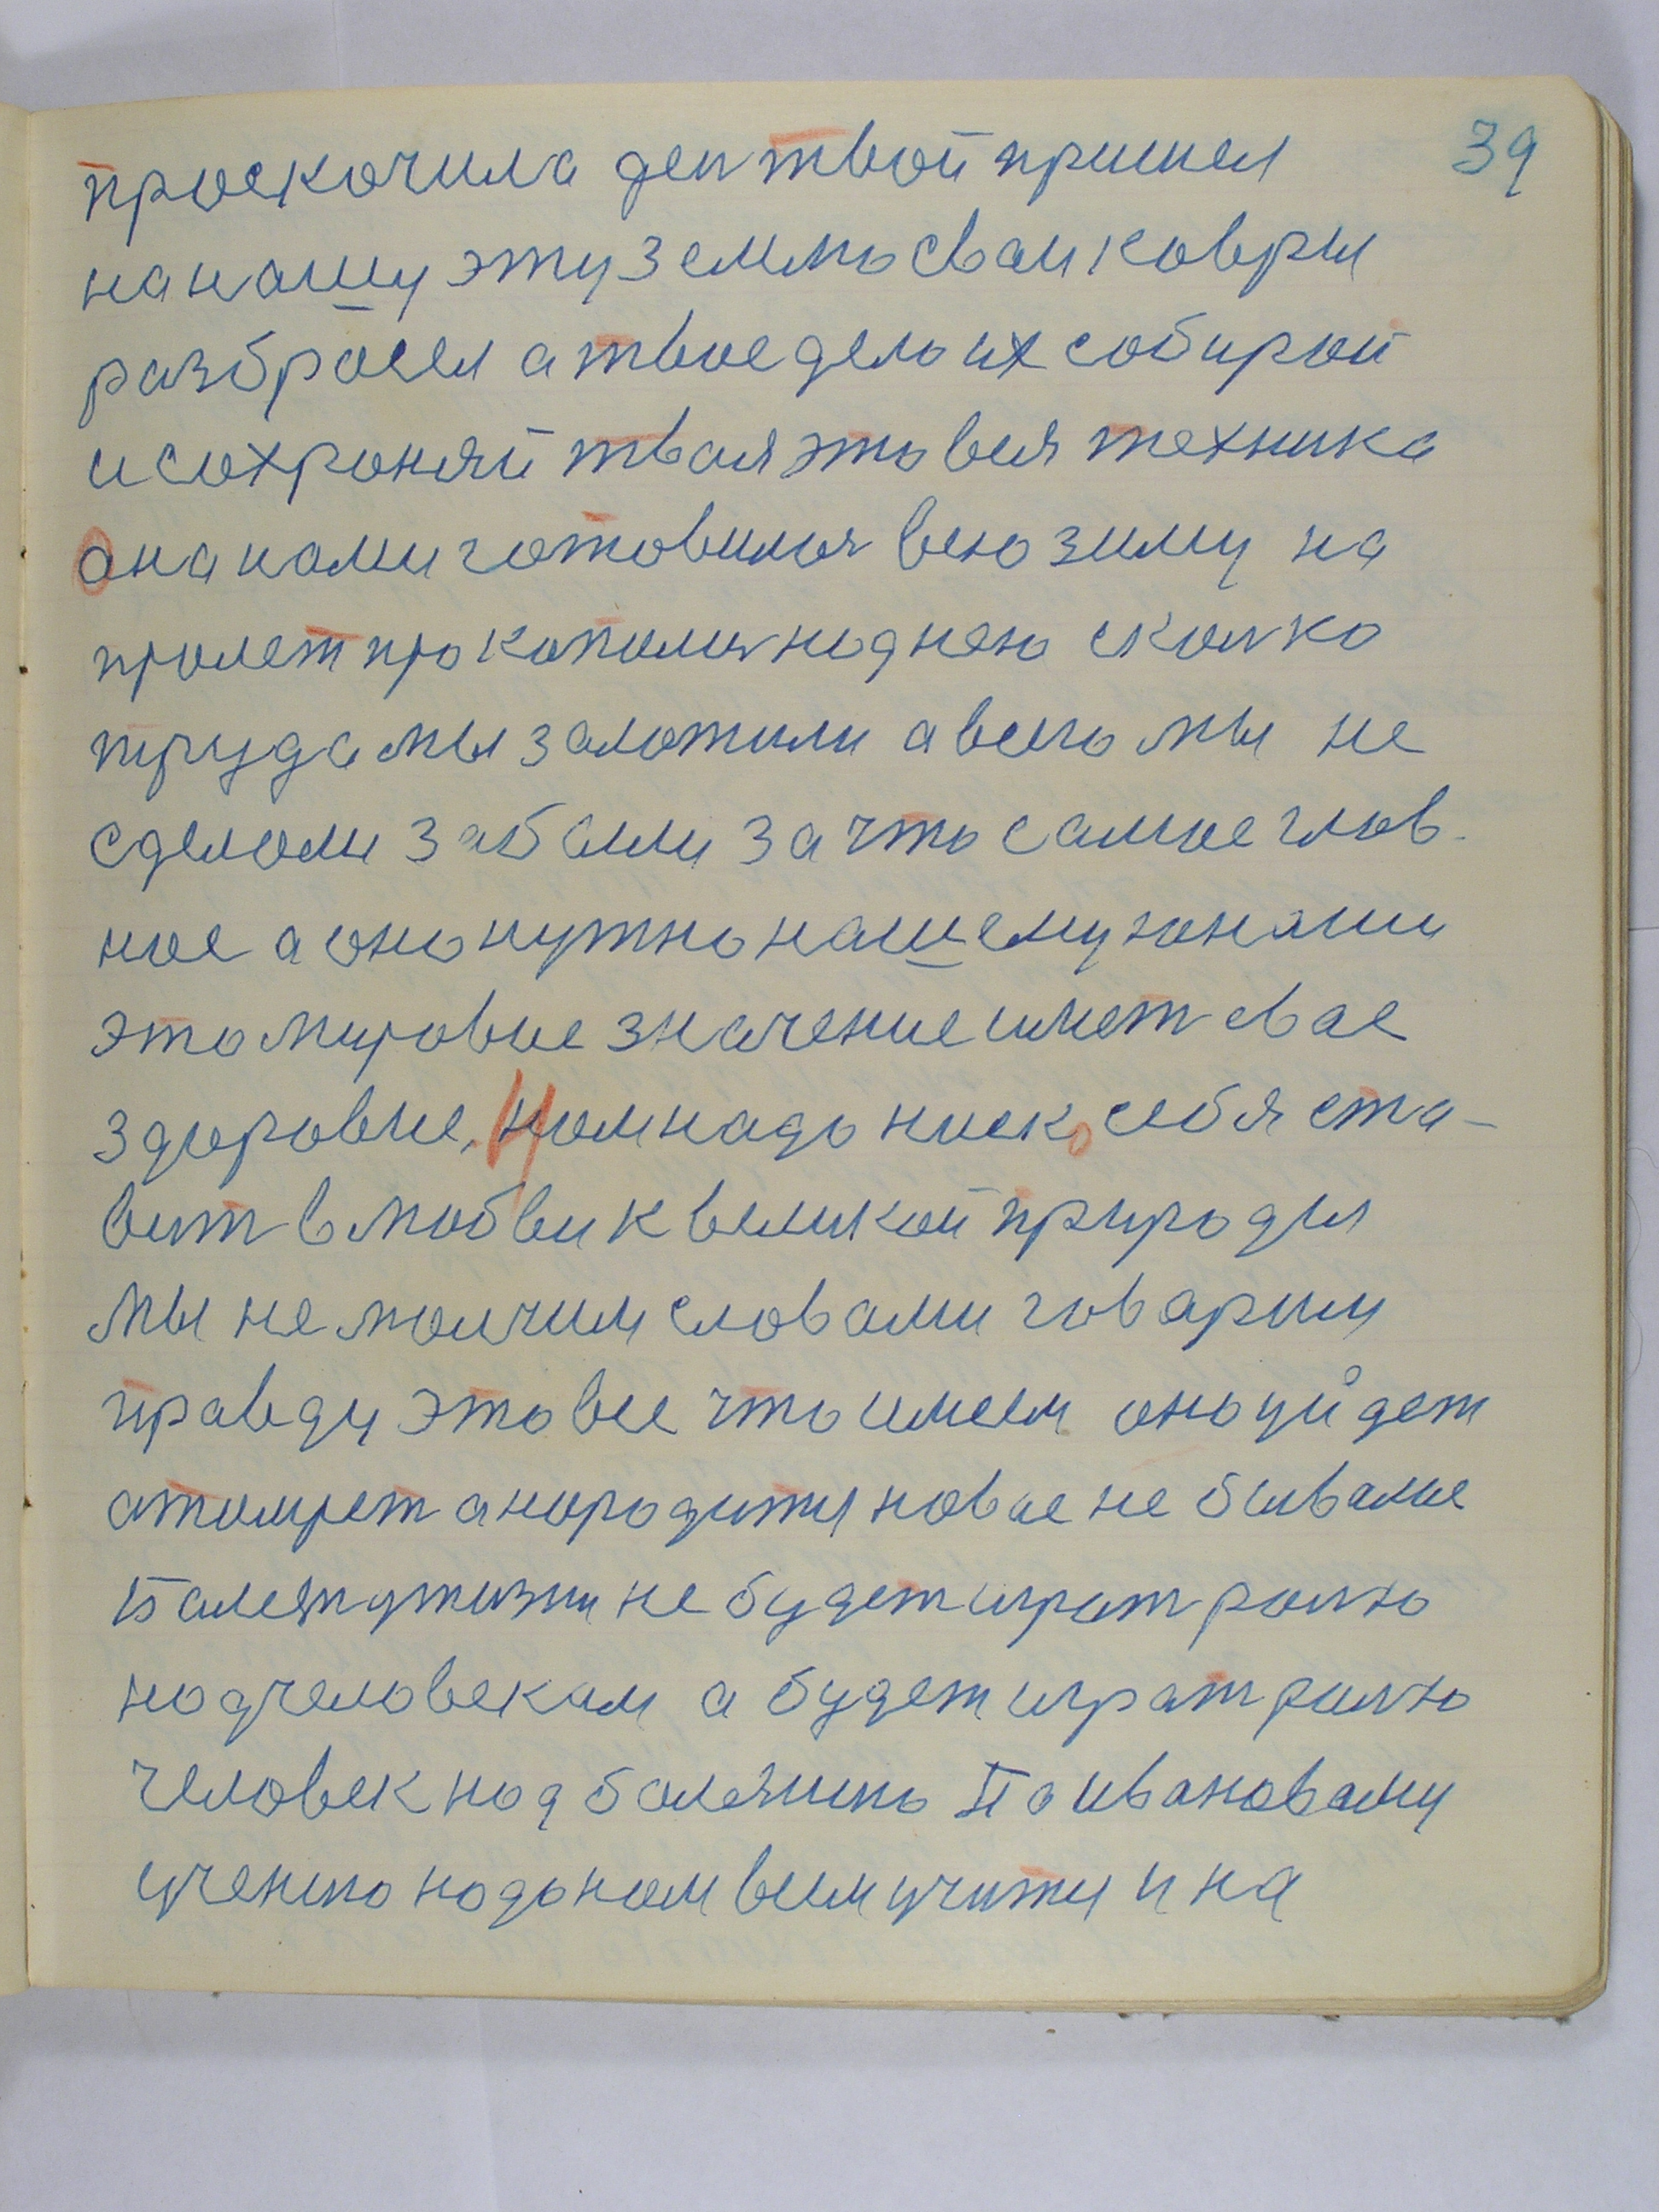 39
проскочила ден твой пришел
на нашу эту землю сваи ковры
разбросел а твое дело их собирой
и сохроняй твая это вся техника
она нами готовилья всю зиму на
пролет прокопались над нею сколко
труда мы заложили а всего мы не
сделоли забыли за что самое глов-
ное а оно нужно нашему юноши
это мировое значение имет свае
здоровие. Нам надо ниско себя ста-
вит в любви к великой природы
мы не молчим словами говарим
правду это все что имеем оно уйдет
атомрет а народится новае не бывалые
Балезн у жизни не будет играт ролю
над человекам а будет играт ролю
человек над болезнию По ивановаму
учению надо нам всем учится и на